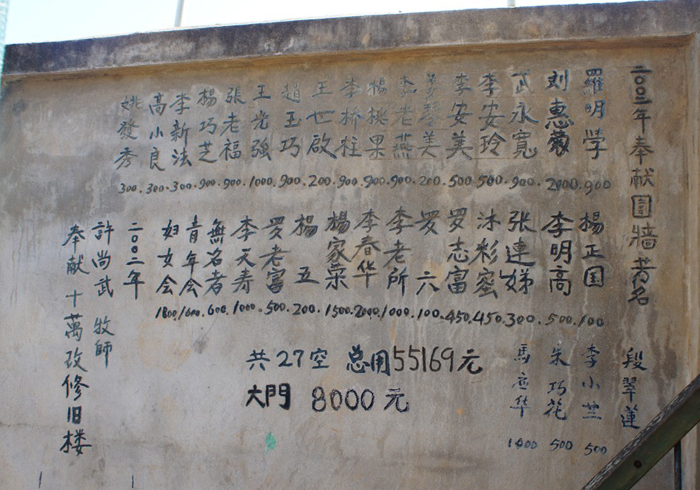 二〇〇二年奉献围牆者名
羅明学 900.
刘惠 2000.
武永寬 900.
李安玲 500.
李安美 500.
美 200.
李老燕 900.
杨桃果 900.
李柳柱 900.
王世啟 200.
趙玉巧 900.
王光強 1000.
張老福 900.
楊巧芝 900.
李新法 300.
高小良 300.
姚發秀 300.
楊正国 100
李明高 500.
张連娣 300.
沐彩蜜 450.
罗志富 450.
罗六 100.
李老所 1000.
李春华 2000.
楊家荣 1500.
楊五 200.
罗老富 500.
李天寿 1000.
無名者 600.
青年会 1600.
妇女会 1800.
二〇〇二年
段翠蓮
李小兰 500
朱巧花 500
馬应华 1400
共27空 总用55169元
大門 8000元
許尚武 牧師
奉献十萬改修旧楼